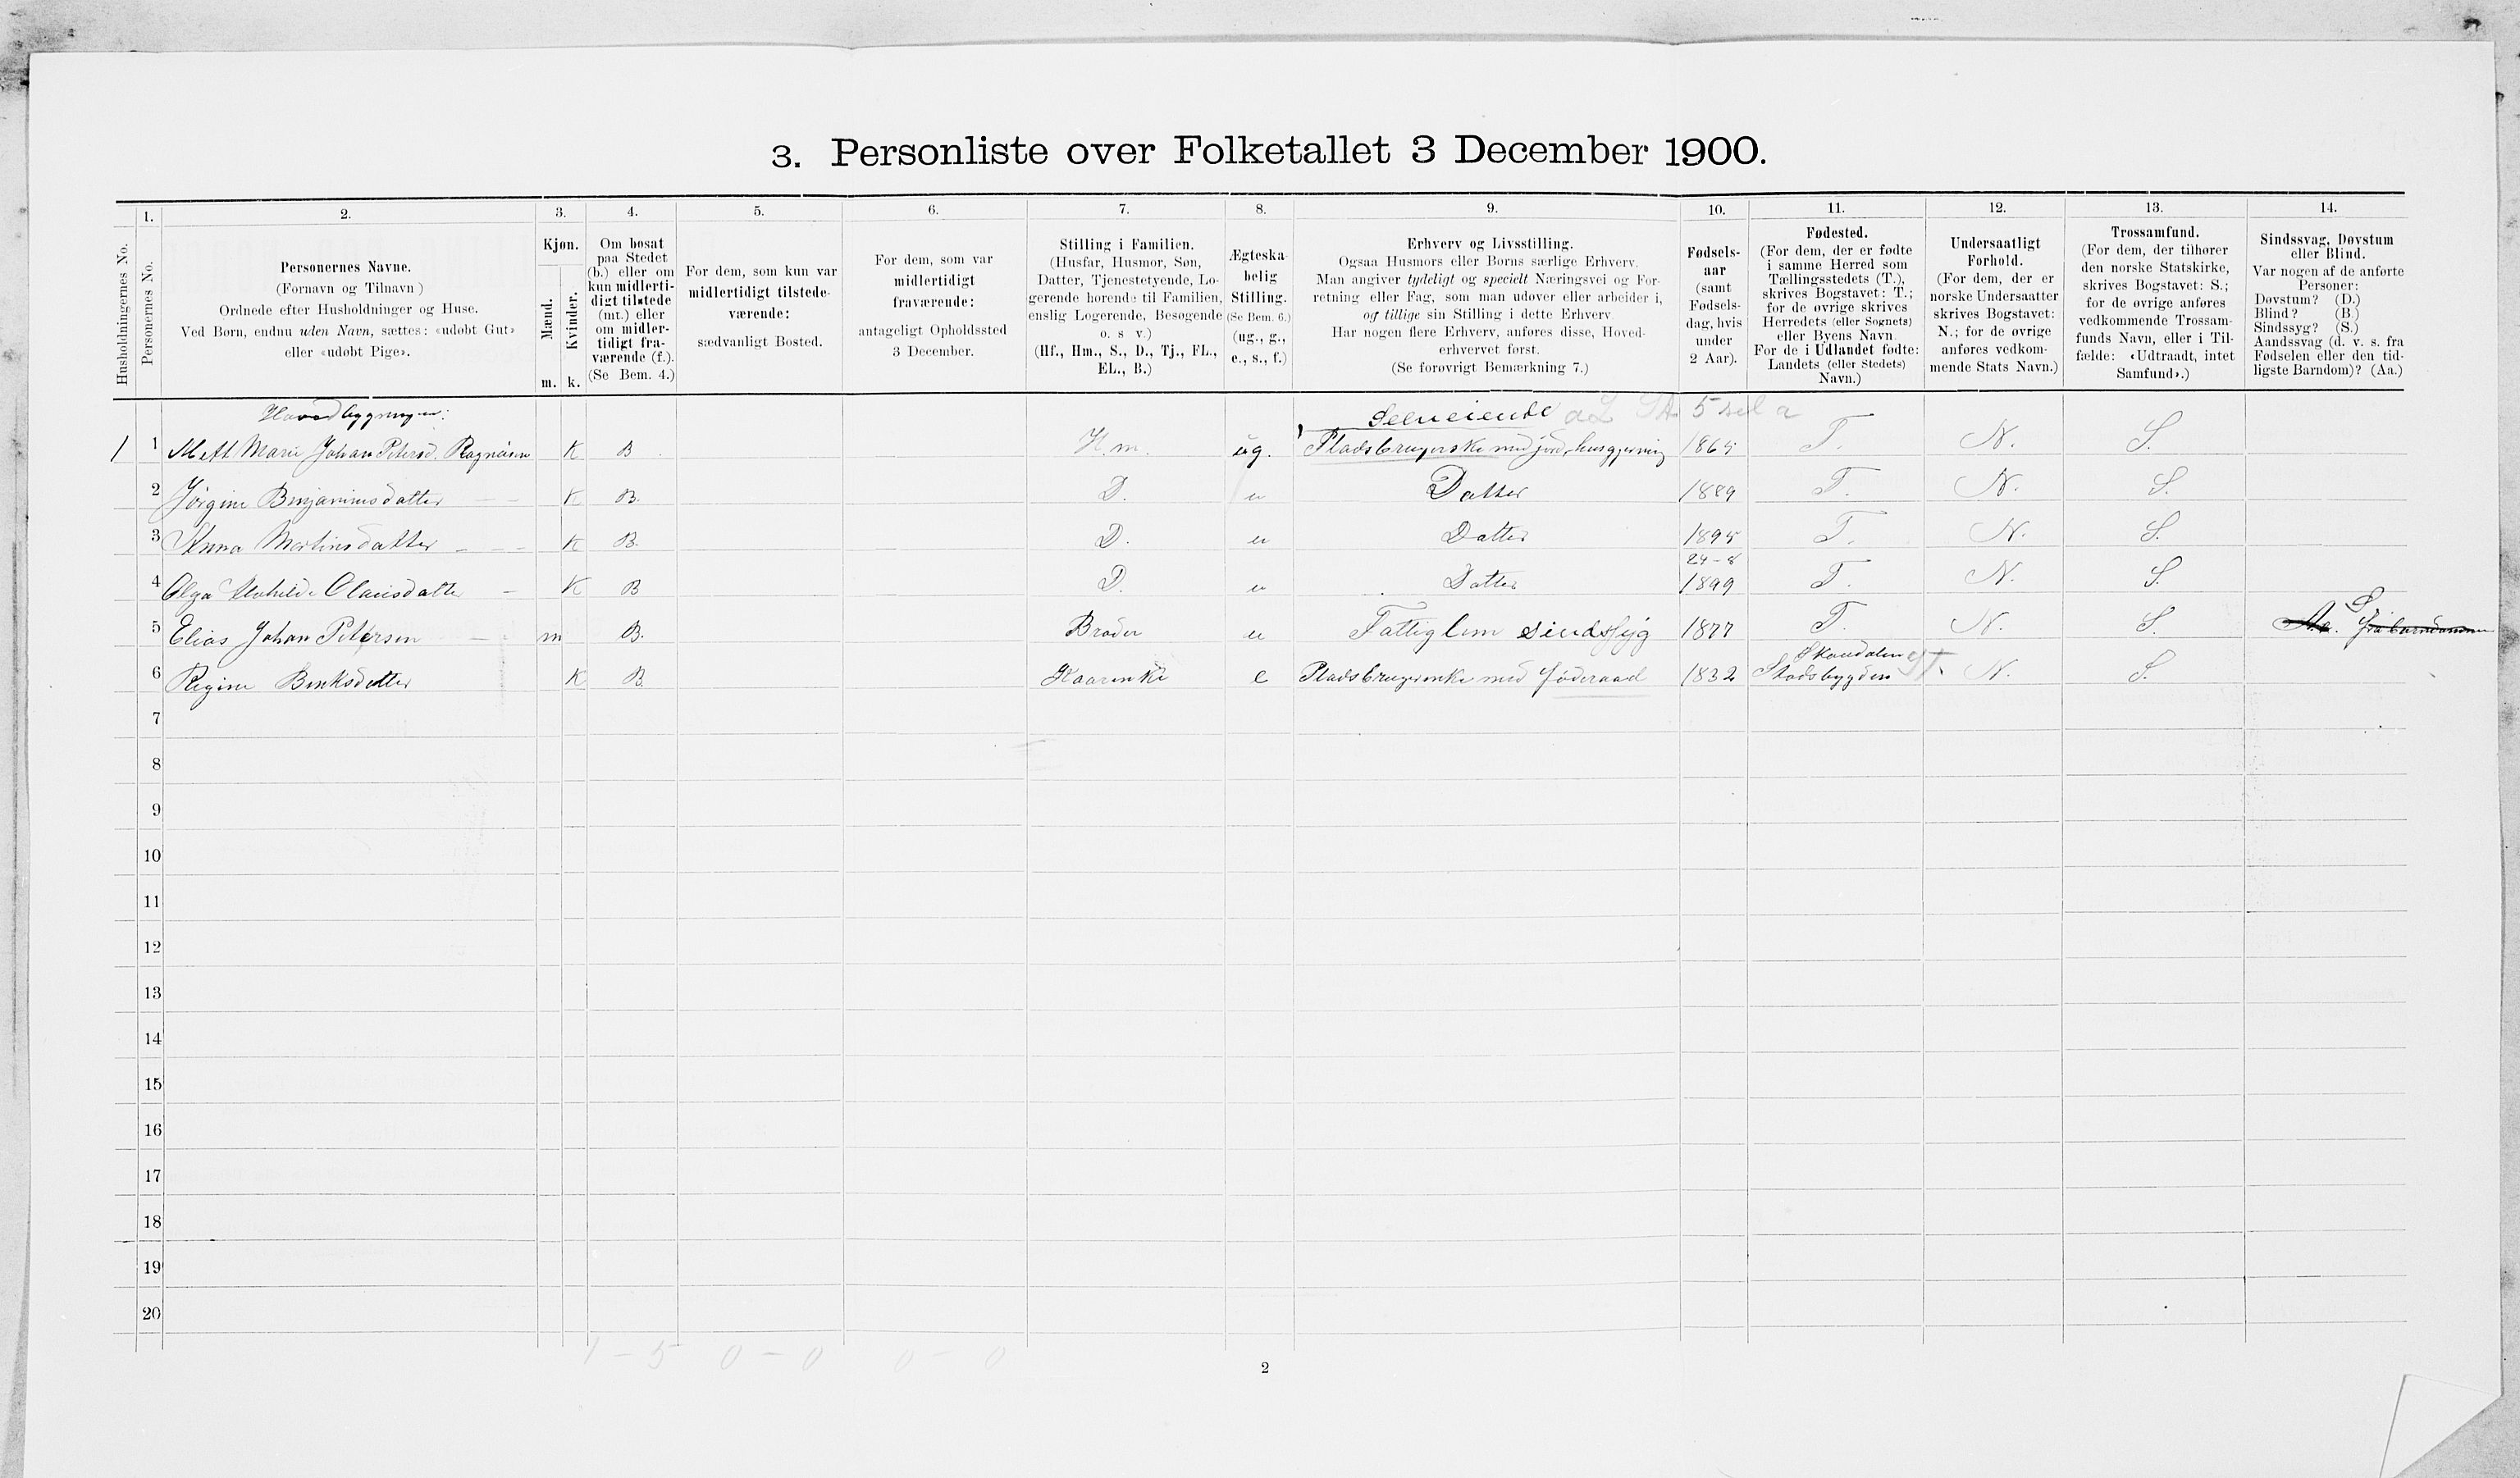 3. Personliste over Folketallet 3 December 1900.
Husholdningernes No.
1.
Personernes No.
2.
Personernes Navne.
(Fornavn og Tilnavn)
Ordnede efter Husholdninger og Huse.
Ved Børn, endnu uden Navn, sættes: «udøbt Gut»
eller «udøbt Pige».
3.
Kjøn.
Mænd.
Kvinder.
m. k.
4.
Om bosat
paa Stedet
(b.) eller om
kun midlerti-
digt tilstede
(mt.) eller
om midler-
tidigt fra-
værende (f.).
(Se Bem. 4.)
5.
For dem, som kun var
midlertidigt tilstede-
værende:
sædvanligt Bosted.
6.
For dem, som var
midlertidigt
fraværende:
antageligt Opholdssted
3 December.
7.
Stilling i Familien.
(Husfar, Husmor, Søn,
Datter, Tjenestetyende, Lo-
gerende hørende til Familien,
enslig Logerende, Besøgende
o. s v.)
(Hf., Hm., S., D., Tj., FL.,
EL., B.)
8.
Ægteska-
belig
Stilling.
(Se Bem. 6.)
(ug., g.,
e., s., f.)
9.
Erhverv og Livsstilling.
Ogsaa Husmors eller Børns særlige Erhverv.
Man angiver tydeligt og specielt Næringsvei og For-
retning eller Fag, som man udøver eller arbeider i,
og tillige sin Stilling i dette Erhverv.
Har nogen flere Erhverv, anføres disse, Hoved-
erhvervet først.
(Se forøvrigt Bemærkning 7.)
10.
Fødsels-
aar
(samt
Fødsels-
dag, hvis
under
2 Aar).
11.
Fødested.
(For dem, der er fødte
i samme Herred som
Tællingsstedets (T.),
skrives Bogstavet: T.;
for de øvrige skrives
Herredets (eller Sognets)
eller Byens Navn.
For de i Udlandet fødte:
Landets (eller Stedets)
Navn.)
12.
Undersaatligt
Forhold.
(For dem, der er
norske Undersaatter
skrives Bogstavet:
N.; for de øvrige
anføres vedkom-
mende Stats Navn.)
13.
Trossamfund.
(For dem, der tilhører
den norske Statskirke,
skrives Bogstavet: S.;
for de øvrige anføres
vedkommende Trossam-
funds Navn, eller i Til-
fælde: «Udtraadt, intet
Samfund».)
14.
Sindssvag, Døvstum
eller Blind.
Var nogen af de anførte
Personer:
Døvstum? (D.)
Blind? (B.)
Sindssyg? (S.)
Aandssvag (d. v. s. fra
Fødselen eller den tid-
ligste Barndom)? (Aa.)
Hovedbygningen: Selveiende
1 1 Mett Marie Johan Petersd. K B H.m. ug. Pladsbrugerske med jord, husgjerning 1865 T. N. S.
2 Jørgine Benjaminsdatter K B. D. Datter 1889 T. N. S.
3 Anna Martinsdatter K B. D. Datter 1895 T. N. S.
24-8
4 Olga Mathilde Olausdatter K B D. Datter 1899 T. N. S.
S
5 Elias Johan Petersen m B. Broder Fattiglem sindssyg 1877 T. N. S. Aa. fra barndommen
Skaudalen
6 Regine Benksdatter K B. Kaarenke e Pladsbrugerenke med Føderaad 1832 Stadsbygden N. S.
7
8
9
10
11
12
13
14
15
16
17
18
19
20
1 - 5 0 - 0 0 - 0
2